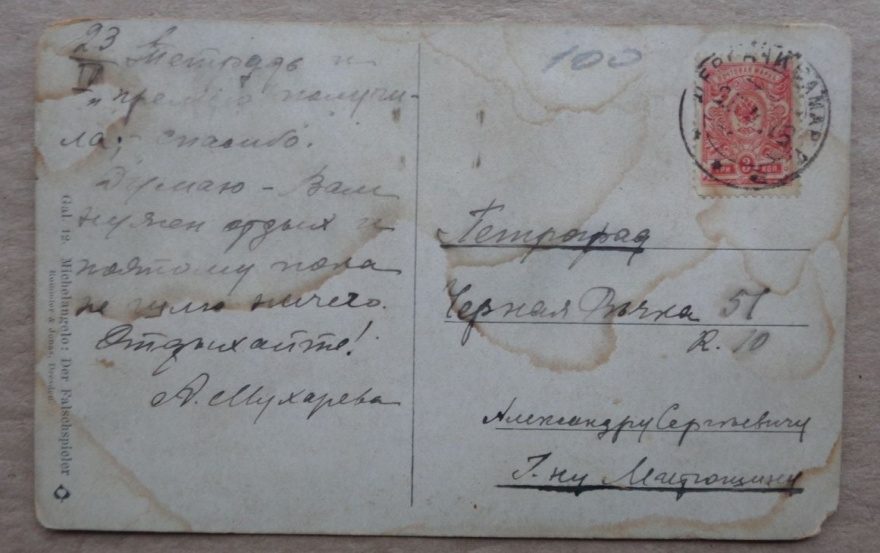 23
IV
Тетрадь и
премию получи-
ла, спасибо.
Думаю - Вам
нужен отдых и
поэтому пока
не шлю ничего.
Отдыхайте!
А. Мухарева
Gal. 12. Michelangelo: Der Falschspieler
Roemmler & Jonas, Dresden
100
ПОЧТОВАЯ МАРКА
3
КОП
Петроград
Черная Рѣчка 51
К. 10
Александру Сергѣевичу
Г-ну Матюшину